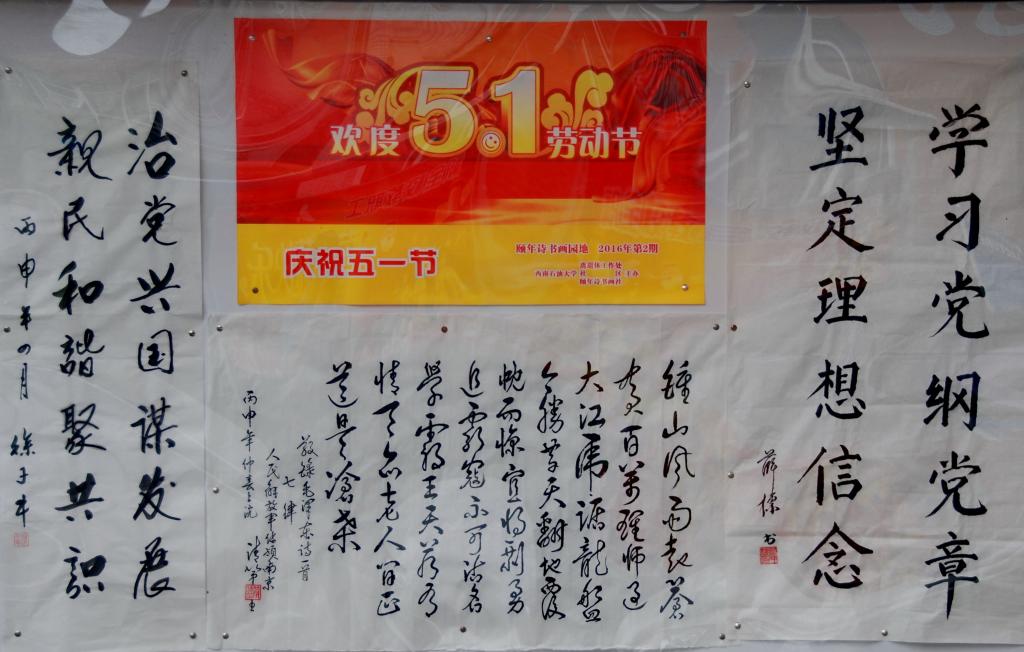 欢度5.1劳动节
庆祝五一节
颐年诗书画园地 2016年第2期
离退休工作处
西南石油大学 社 区 主办
颐年诗书画社
学习党纲党章
坚定理想信念
书
鍾山风雨起蒼
黄百萬雄师过
大江虎踞龍盤
今勝昔天翻地覆
慨而慷宜将剩勇
追窮寇不可沽名
學霸王天若有
情天亦老人间正
道是滄桑
敬録毛澤东诗一首
七律
人民解放軍佔領南京
丙申年仲春上浣
治党兴国谋发展
親民和諧聚共識
丙申年四月